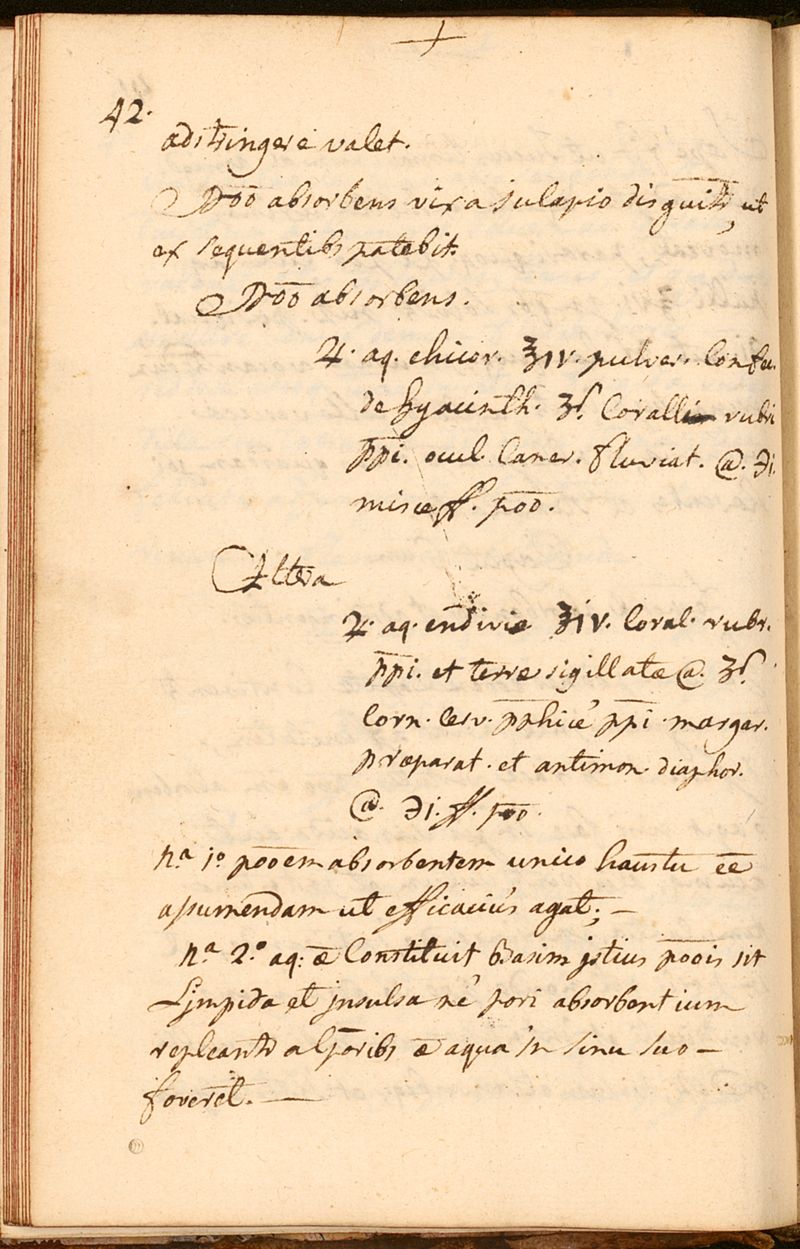 42.
adstringere valet.
Potio absorbens vix a julapio disguitr, ut
ex sequentibs patebit.
Poõ absorbens.
♃. aq. chicor. ℥iv. pulver. Confec.
de hyacinth. ʒß. Coralli rubri
ppi. ocul. Cancr. fluviat. @. ℈i.
misce ff. poõ.
Altera
♃. aq. endivie ℥iv. Coral. rubr.
ppi. et terræ sigillatæ @. ʒß.
Corn. Cerv. pphicè ppi. margar.
præparat. et antimon. diaphor.
@. ℈i. ff. poõ.
na. 1o. poõem absorbentem unico haustu eē
assumendam ut efficacius agat; —
na. 2.o aq: æ Constituit Basim istius poõis sit
Lympida et insulsa nè pori absorbentium
repleantr a æ aqua in sinu suo —
foveret. —